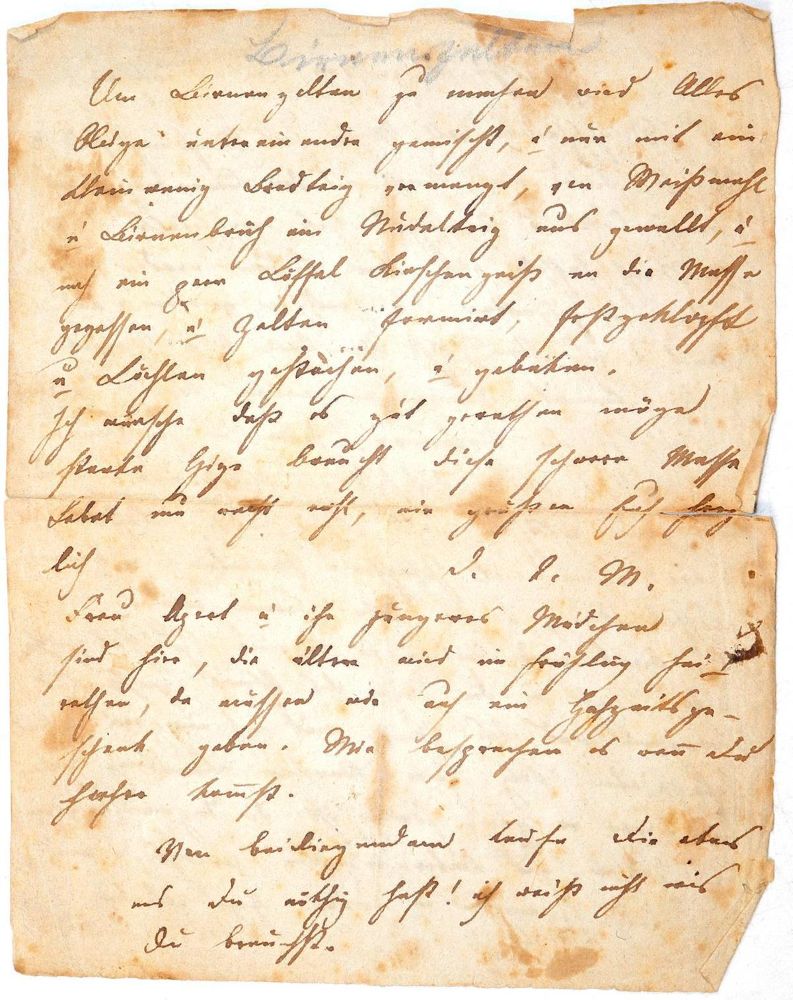 Birnenzelten
Um Birnenzelten zu machen wird Alles
Obige untereinander gemischt, u nur mit ein
klein wenig Brodteig vermengt, von Weißmehl
u Birnenbrüh ein Nudelteig aus gewallt, u
noch ein paar Löffel Kirschengeist an die Masse
gegossen, u Zelten formirt, festgeklopft
u Löchlen gestochen, u gebaken.
Ich wünsche daß es gut gerathen möge
starke Hize braucht diese schwere Masse
Lebet nun recht wohl, wir grüßen Euch herz
lich D. l. M.
Frau u ihr jüngeres Mädchen
sind hier, die ältere wird im Frühling hei-
rathen, da müssen wir auch ein Hochzeitsge-
schenk geben. Wir besprechen es wenn Du
hierher kommst.
Von beiliegendem kaufe Dir etwas
was Du nöthig hast! ich weiß nicht was
Du brauchst.